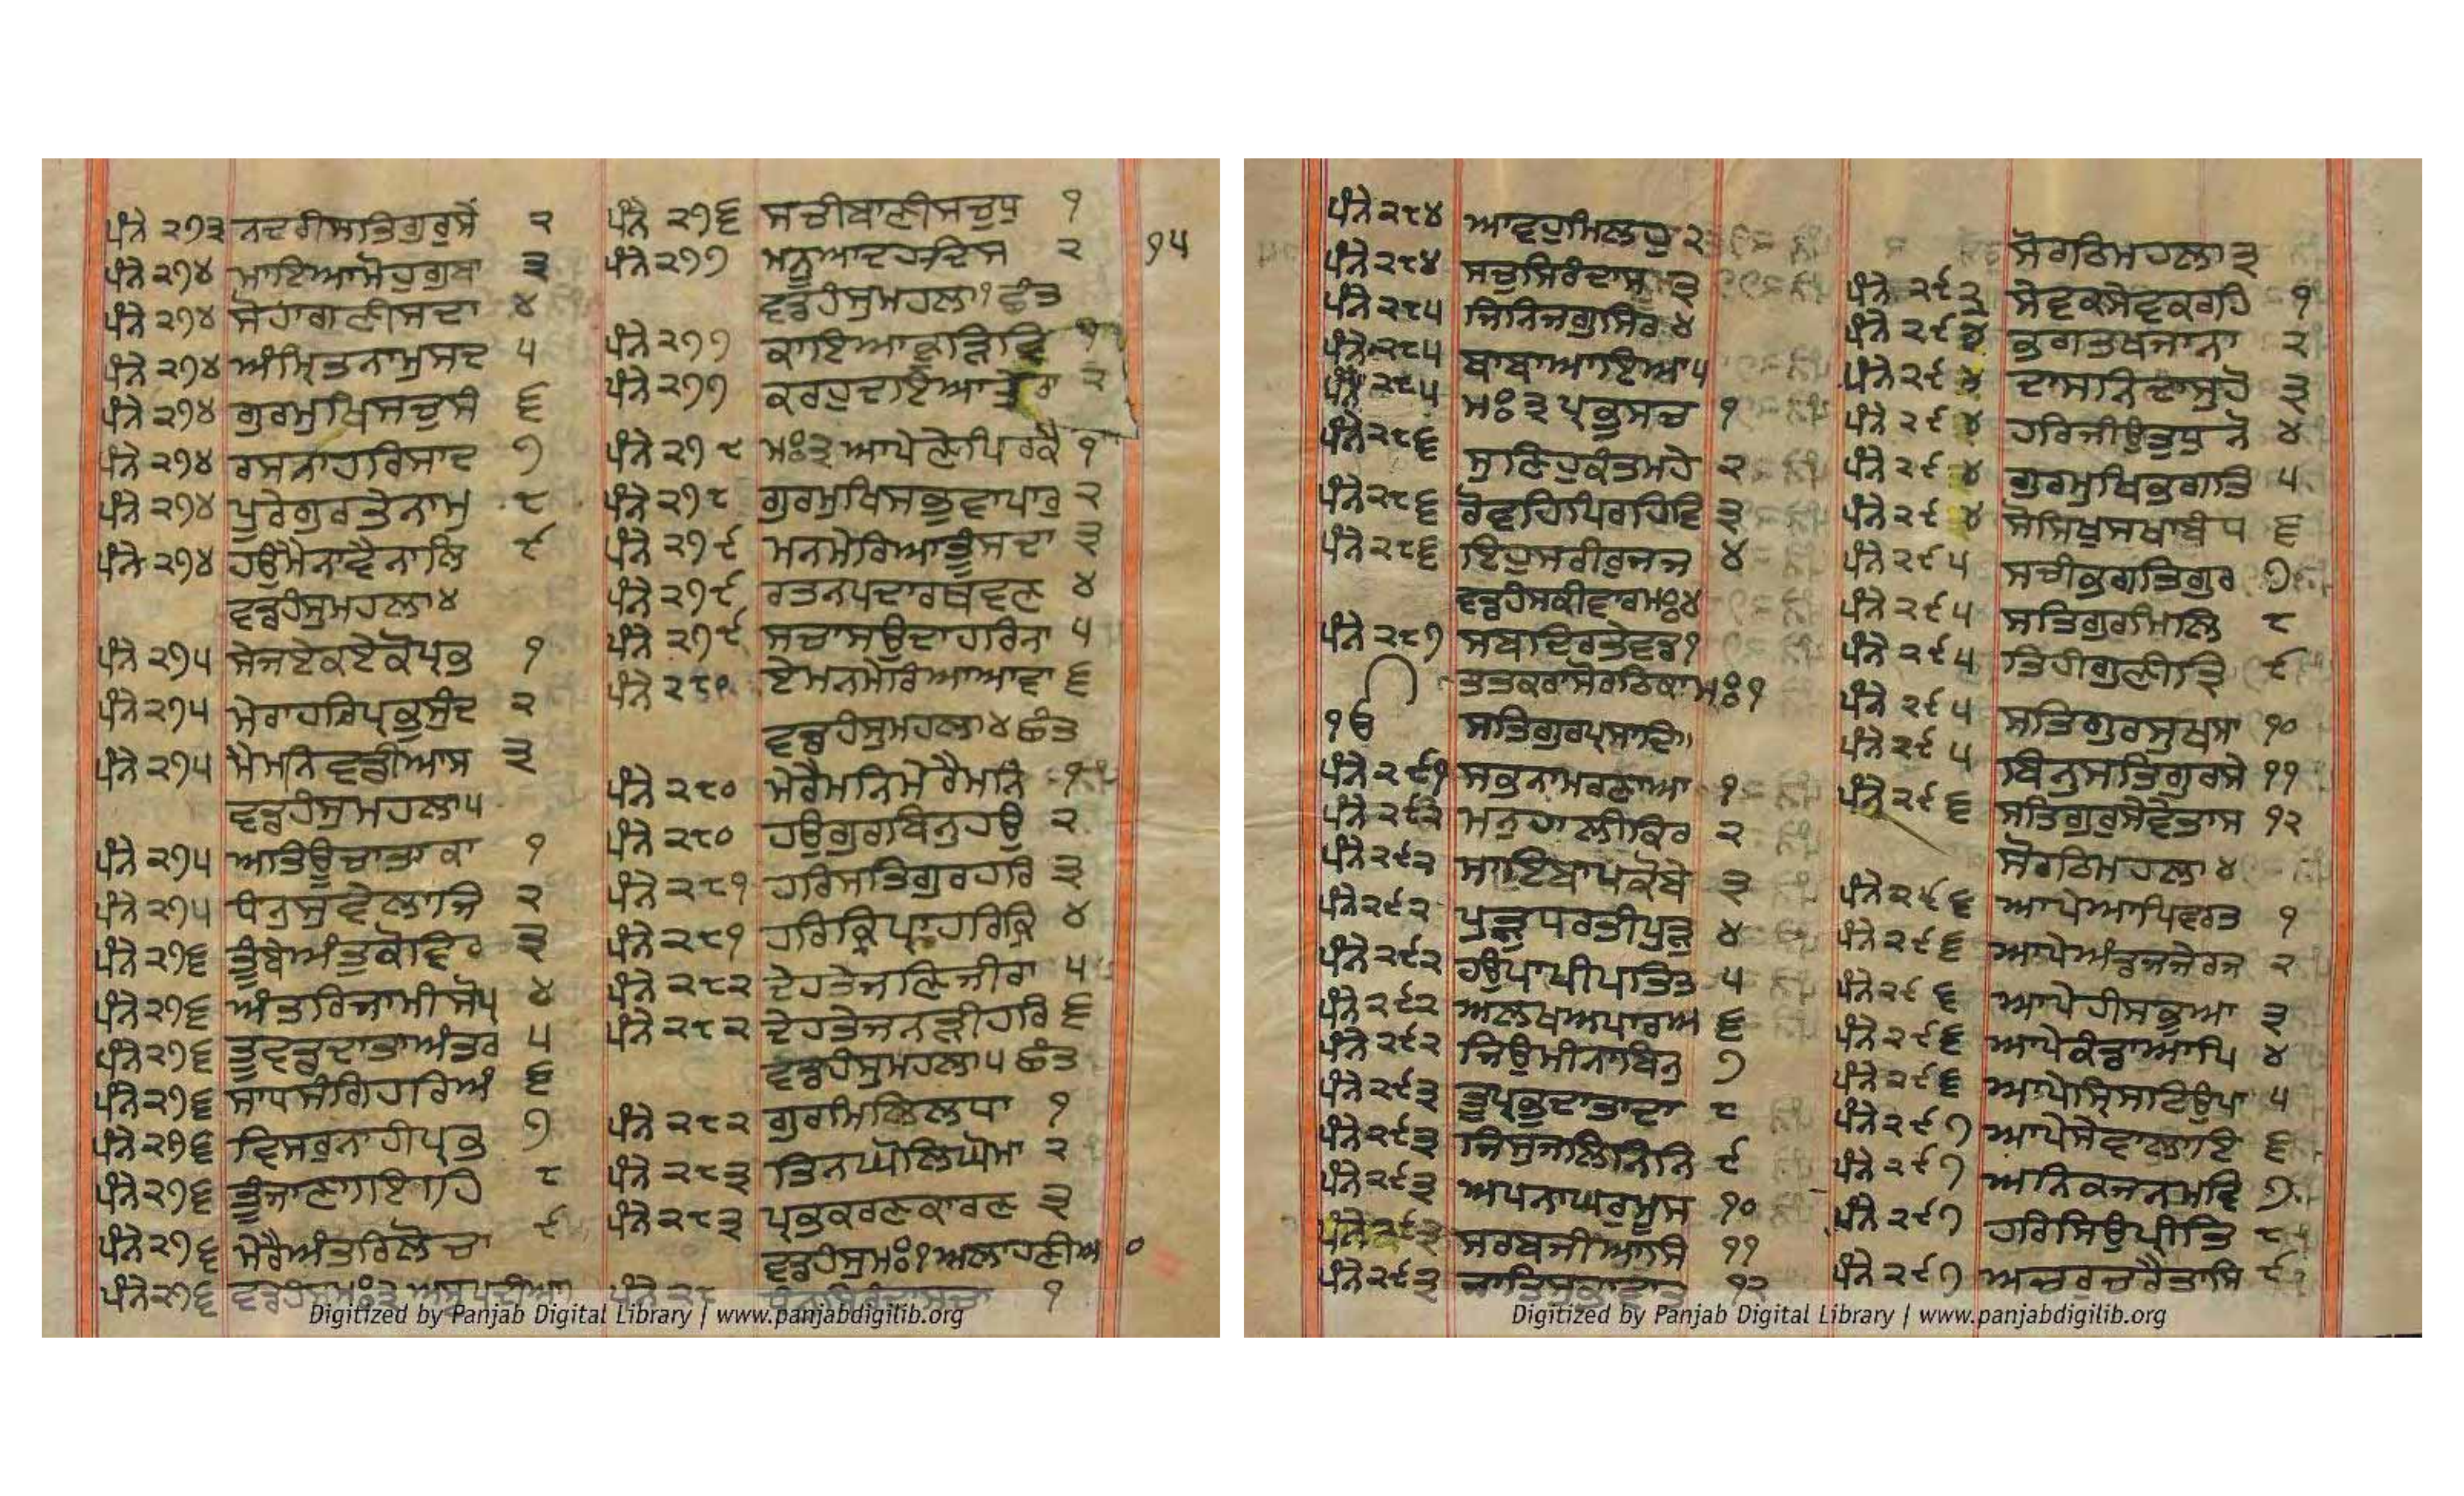 ਪੰਨੇ ੨੭੩ ਨਦਰੀਸਤਿਗੁਰੁਸੇ ੨
ਪੰਨੇ ੨੭੪ ਮਾਇਆਮੋਹੁਗੁਬਾ ੩
ਪੰਨੇ ੨੭੪ ਸੋਹਾਗਣੀਸਦਾ ੪
ਪੰਨੇ ੨੭੪ ਅੰਮ੍ਰਿਤਨਾਮੁਸਦ ੫
ਪੰਨੇ ੨੭੪ ਗੁਰਮੁਖਿਸਚੁਸੰ ੬
ਪੰਨੇ ੨੭੪ ਰਸਨਾਹਰਿਸਾਦ ੭
ਪੰਨੇ ੨੭੪ ਪੂਰੇਗੁਰਤੇਨਾਮੁ ੮
ਪੰਨੇ ੨੭੪ ਹਉਮੈਨਾਵੈਨਾਲਿ ੯
ਵਡਹੰਸੁਮਹਲਾ੪
ਪੰਨੇ ੨੭੫ ਸੇਜਏਕਏਕੋਪ੍ਰਭੁ ੧
ਪੰਨੇ ੨੭੫ ਮੇਰਾਹਰਿਪ੍ਰਭੁਸੁੰਦ ੨
ਪੰਨੇ ੨੭੫ ਮੈਮਨਿਵਡੀਆਸ ੩
ਵਡਹੰਸੁਮਹਲਾ੫
ਪੰਨੇ ੨੭੫ ਅਤਿਊਚਾਤਾਕਾ ੧
ਪੰਨੇ ੨੭੫ ਧਨੁਸੁਵੇਲਾਜਿ ੨
ਪੰਨੇ ੨੭੬ ਤੂੰਬੇਅੰਤੁਕੋਵਿਰ ੩
ਪੰਨੇ ੨੭੬ ਅੰਤਰਿਜਾਮੀਸੋਪ ੪
ਪੰਨੇ ੨੭੬ ਤੂਵਡਦਾਤਾਅੰਤਰ ੫
ਪੰਨੇ ੨੭੬ ਸਾਧਸੰਗਿਹਰਿਅੰ ੬
ਪੰਨੇ ੨੭੬ ਵਿਸਰੁਨਾਹੀਪ੍ਰਭੁ ੭
ਪੰਨੇ ੨੭੬ ਤੂੰਜਾਣਾਇਹਿ ੮
ਪੰਨੇ ੨੭੬ ਮੇਰੈਅੰਤਰਿਲੋਚਾ ੯
ਪੰਨੇ ੨੭੬ ਵਡਹੰਸੁਮਃ੩ਅਸਟਪਦੀਆ
ਪੰਨੇ ੨੭੬ ਸਚੀਬਾਣੀਸਚੁਧੁ ੧
ਪੰਨੇ ੨੭੭ ਮਨੂਆਦਹਦਿਸ ੨
੧੫
ਵਡਹੰਸੁਮਹਲਾ੧ਛੰਤ
ਪੰਨੇ ੨੭੭ ਕਾਇਆਕੂੜਿਵਿ ੧
ਪੰਨੇ ੨੭੭ ਕਰਹੁਦਇਆਤੇਰਾ ੨
ਪੰਨੇ ੨੭੮ ਮਃ੩ਆਪੇਣੇਪਿਰਕੈ ੧
ਪੰਨੇ ੨੭੮ ਗੁਰਮੁਖਿਸਭੁਵਾਪਾਰੁ ੨
ਪੰਨੇ ੨੭੯ ਮਨਮੇਰਿਆਤੂੰਸਦਾ ੩
ਪੰਨੇ ੨੭੯ ਰਤਨਪਦਾਰਥਵਣ ੪
ਪੰਨੇ ੨੭੯ ਸਚਾਸਉਦਾਹਰਿਨਾ ੫
ਪੰਨੇ ੨੮੦ ਏਮਨਮੇਰਿਆਆਵਾ ੬
ਵਡਹੰਸੁਮਹਲਾ੪ਛੰਤ
ਪੰਨੇ ੨੮੦ ਮੇਰੈਮਨਿਮੇਰੈਮਨਿ ੧
ਪੰਨੇ ੨੮੦ ਹਉਗੁਰਬਿਨੁਹਉ ੨
ਪੰਨੇ ੨੮੧ ਹਰਿਸਤਿਗੁਰਹਰਿ ੩
ਪੰਨੇ ੨੮੧ ਹਰਿਕ੍ਰਿਪਾਹਰਿਕ੍ਰਿ ੪
ਪੰਨੇ ੨੮੨ ਦੇਹਤੇਜਣਿਜੀਰਾ ੫
ਪੰਨੇ ੨੮੨ ਦੇਹਤੇਜਨੜੀਹਰਿ ੬
ਵਡਹੰਸੁਮਹਲਾ੫ਛੰਤ
ਪੰਨੇ ੨੮੨ ਗੁਰਮਿਲਿਲਧਾ ੧
ਪੰਨੇ ੨੮੩ ਤਿਨਘੋਲਿਘੋਮਾ ੨
ਪੰਨੇ ੨੮੩ ਪ੍ਰਭੁਕਰਣਕਾਰਣ ੩
ਵਡਹੰਸੁਮਃ੧ਅਲਾਹਣੀਅ ੦
Digitized by Panjab Digital Library | www.panjabdigilib.org
ਪੰਨੇ ੨੮੪ ਆਵਹੁਮਿਲਹੁ ੨
ਪੰਨੇ ੨੮੪ ਸਚੁਸਿਰੰਦਾਸ ੩
ਪੰਨੇ ੨੮੫ ਜਿਨਿਜਗੁਸਿਰ ੪
ਪੰਨੇ ੨੮੫ ਬਾਬਾਆਇਆ ੫
ਪੰਨੇ ੨੮੫ ਮਃ੩ਪ੍ਰਭੁਸਚ ੧
ਪੰਨੇ ੨੮੬ ਸੁਣਿਹੁਕੰਤਮਹੇ ੨
ਪੰਨੇ ੨੮੬ ਰੋਵਹਿਪਿਰਹਿਵਿ ੩
ਪੰਨੇ ੨੮੬ ਇਹੁਸਰੀਰੁਜਜ ੪
ਵਡਹੰਸਕੀਵਾਰਮਃ੪
ਪੰਨੇ ੨੮੭ ਸਬਦਿਰਤੇਵਡ ੧
ਤਤਕਰਾਸੋਰਠਿਕਾਮਃ੧
ੴ ਸਤਿਗੁਰਪ੍ਰਸਾਦਿ
ਪੰਨੇ ੨੯੧ ਸਭਨਾਮਰਣਾਆ ੧
ਪੰਨੇ ੨੯੨ ਮਨੁਹਾਲੀਕਿਰ ੨
ਪੰਨੇ ੨੯੨ ਮਾਇਬਾਪਕੋਬੇ ੩
ਪੰਨੇ ੨੯੨ ਪੁੜੁਧਰਤੀਪੁੜੁ ੪
ਪੰਨੇ ੨੯੨ ਹਉਪਾਪੀਪਤਿਤ ੫
ਪੰਨੇ ੨੯੨ ਅਲਖਅਪਾਰਅ ੬
ਪੰਨੇ ੨੯੨ ਜਿਉਮੀਨਾਬਿਨੁ ੭
ਪੰਨੇ ੨੯੩ ਤੂਪ੍ਰਭੁਦਾਤਾਦਾ ੮
ਪੰਨੇ ੨੯੩ ਜਿਸੁਜਲਿਨਿਨਿ ੯
ਪੰਨੇ ੨੯੩ ਅਪਨਾਘਰੁਮੂਸ ੧੦
ਪੰਨੇ ੨੯੩ ਸਰਬਜੀਆਸਿ ੧੧
ਪੰਨੇ ੨੯੩ ੧੨
ਸੋਰਠਿਮਹਲਾ੩
ਪੰਨੇ ੨੯੨ ਸੇਵਕਸੇਵਕਰਹਿ ੧
ਪੰਨੇ ੨੯੪ ਭਗਤਖਜਾਨਾ ੨
ਪੰਨੇ ੨੯੪ ਦਾਸਨਿਦਾਸੁਹੋ ੩
ਪੰਨੇ ੨੯੪ ਹਰਿਜੀਉਤੁਧੁਨੋ ੪
ਪੰਨੇ ੨੯੪ ਗੁਰਮੁਖਿਭਗਤਿ ੫
ਪੰਨੇ ੨੯੪ ਸੋਸਿਖੁਸਖਾਬੰਧ ੬
ਪੰਨੇ ੨੯੫ ਸਚੀਭਗਤਿਗੁਰ ੭
ਪੰਨੇ ੨੯੫ ਸਤਿਗੁਰਮਿਲਿ ੮
ਪੰਨੇ ੨੯੫ ਤਿਹੀਗੁਣੀਤ੍ਰਿ ੯
ਪੰਨੇ ੨੯੫ ਸਤਿਗੁਰਸੁਖਸਾ ੧੦
ਪੰਨੇ ੨੯੫ ਬਿਨੁਸਤਿਗੁਰਸੇ ੧੧
ਪੰਨੇ ੨੯੬ ਸਤਿਗੁਰੁਸੇਵੇਤਾਸ ੧੨
ਸੋਰਠਿਮਹਲਾ੪
ਪੰਨੇ ੨੯੬ ਆਪੇਆਪਿਵਰਤ ੧
ਪੰਨੇ ੨੯੬ ਆਪੇਅੰਡਜਜੇਰਜ ੨
ਪੰਨੇ ੨੯੬ ਆਪੇਹੀਸਭੁਆ ੩
ਪੰਨੇ ੨੯੬ ਆਪੇਕੰਡਾਆਪਿ ੪
ਪੰਨੇ ੨੯੬ ਆਪੇਸ੍ਰਿਸਟਿਉਪਾ ੫
ਪੰਨੇ ੨੯੭ ਆਪੇਸੇਵਾਲਾਇ ੬
ਪੰਨੇ ੨੯੭ ਅਨਿਕਜਨਮਵਿ ੭
ਪੰਨੇ ੨੯੭ ਹਰਿਸਿਉਪ੍ਰੀਤਿ ੮
ਪੰਨੇ ੨੯੭ ਅਚਰੁਚਰੈਤਾਸਿ ੯
Digitized by Panjab Digital Library | www.panjabdigilib.org